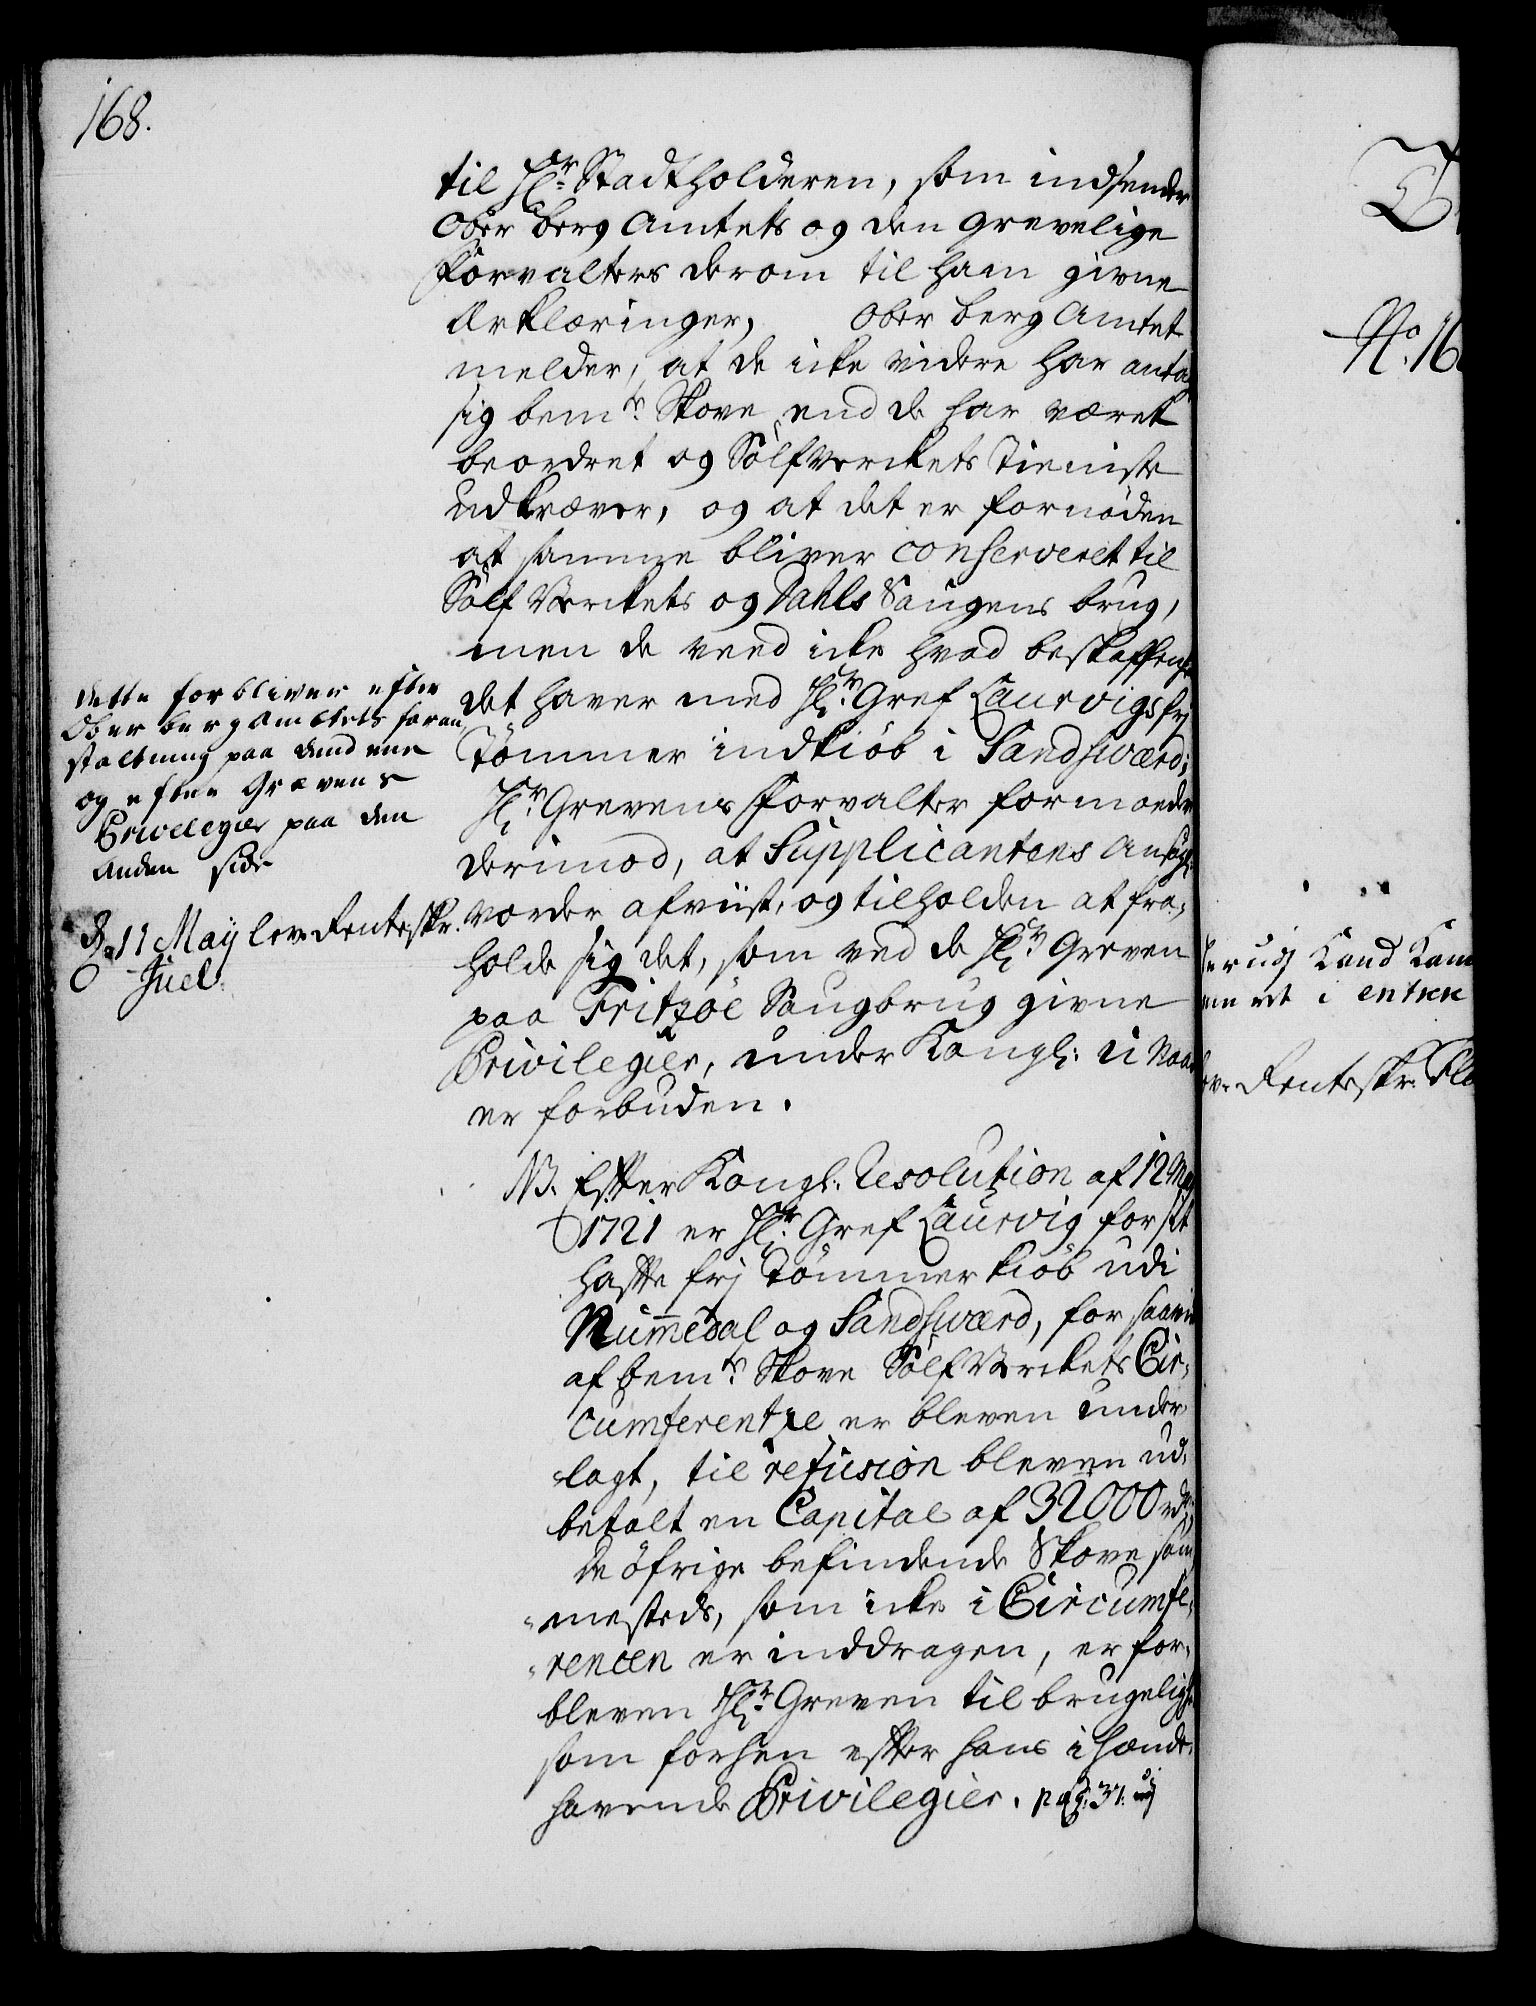 168.
til Hr. Stadtholderen, som indsender
Ober Berg Amtets og den Grevelige
Forvalters derom til ham givne
Erklæringer, Ober Berg Amtet
melder, at de icke videre har anta
sig bemte. Skove end de har været
beordret og Sølfverckets Tieniste
udkræver, og at det er fornöden
at samme bliver conserveret til
Sölf Verckets og Dahls Saugens brug,
men de veed icke hvad beskaffenh
det haver med Hr. Gref Laurvigs frj
Tömmer indkiöb i Sandsværd;
Hr. Grevens Forvalter formoeder
derimod, at Supplicantens Ansøgn:
vorder afviist, og tilholden at fra-
holde sig det, som ved de Hr. Greven
paa Fritzöe Saugbrug givne
Privilegier, under Kongl: U Naad
er forbuden.
NB. Efter Kongl. Resolution af 12 May
1721 er Hr. Gref Laurvig for sit
hafte frj Tömmer kiöb udi
Nummedal og Sandsværd, for saavit
af bemte. Skove Sölf Verckets Cir-
cumferentze er bleven under-
lagt, til refusion bleven ud-
betalt en Capital af 32000 rd.
de öfrige befindende Skove sam
mesteds, som icke i Circumfe-
rencen er inddragen, er for-
bleven Hr. Greven til brugelighe
som forhen efter hans i hænde-
havende Privilegier. pag: 37.
dette forbliver efter
Ober berg Amtets foran
staltning paa dend eene
og efter Grevens
Privilegier paa den
anden side
d. 11 May lev. Renteskr.
Juel.
No. 16
Kand Kam
i entree
Renteskr.